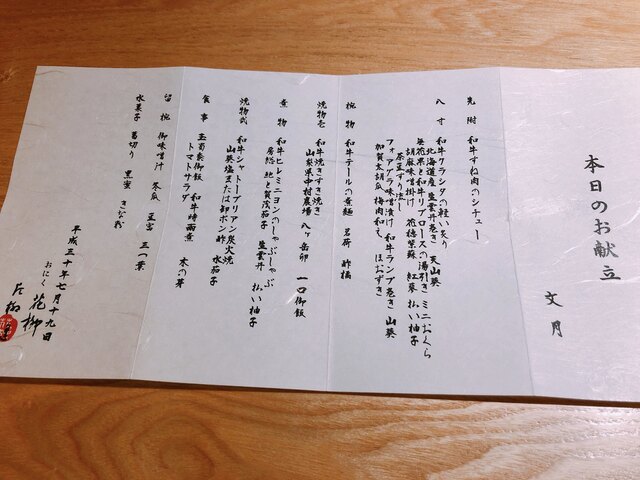 本日のお献立
文月
先附 和牛すね肉のシチュー
八寸 和牛クラシタの軽い炙り 天山葵
北海道産塩雲丹巻き ミニおくら
無花果と和牛リブロースの湯引き
胡麻味噌掛け 花穂紫蘇 紅蓼 払い柚子
茶豆すり流し
フォアグラ味噌漬け 和牛ランプ巻き 山葵
加賀太胡瓜 梅肉和え ほおずき
椀物 和牛テールの煮麺 茗荷 酢橘
焼物壱 和牛焼きすき焼き
山梨県中村農場 八ヶ岳卵 一口御飯
煮物 和牛ヒレミニヨンのしゃぶしゃぶ
房総鮑と賀茂茄子 塩雲丹 払い柚子
焼物弐 和牛シャトーブリアン炭火焼
山葵塩または卸ポン酢 水茄子
食事 玉蜀黍御飯 和牛時雨煮 木の芽
トマトサラダ
留椀 御味噌汁 冬瓜 豆富 三つ葉
水菓子 葛切り 黒蜜 きな粉
平成三十年七月十九日
おにく 花柳
片柳